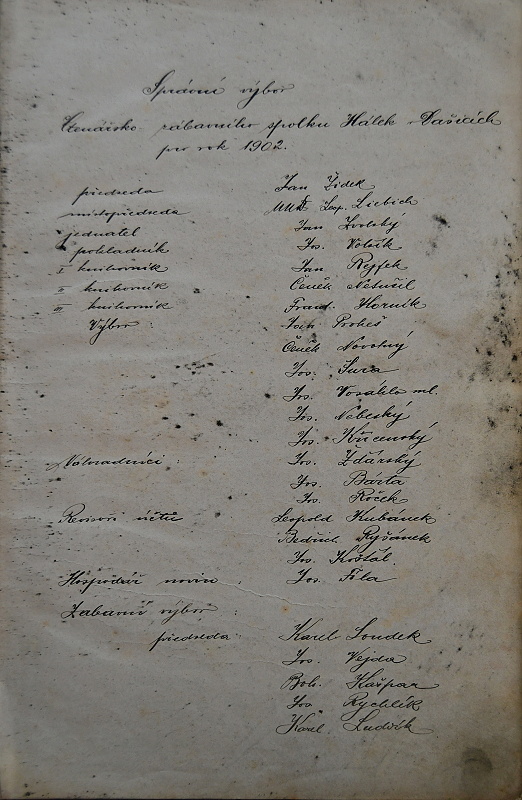 Správní výbor
Čtenářsko zábavního spolku Hálek v Dašicích
pro rok 1902.
předseda Jan Žídek
místopředseda MUDr Leop. Liebich
jednatel Jan Zvolský
pokladník Jos. Volák
I knihovník Jan Rejfek
II knihovník Čeněk Netušil
III knihovník Frant. Horník
Výbor: Jan Prokeš
Čeněk Novotný
Jos. Šura
Jos. Vosáhlo ml.
Jos. Nebeský
Jos. Křičenský
Náhradníci: Jos. Žďárský
Jos. Bárta
Jos. Roček
Revisoři účtů Leopold Kubánek
Bedřich Ryšánek
Jos. Košťál
Hospodář novin: Jos. Fila
Zábavní výbor:
předseda: Karel Soudek
Jos. Vejda
Boh. Kašpar
Jos Rychlík
Karel Ludvík